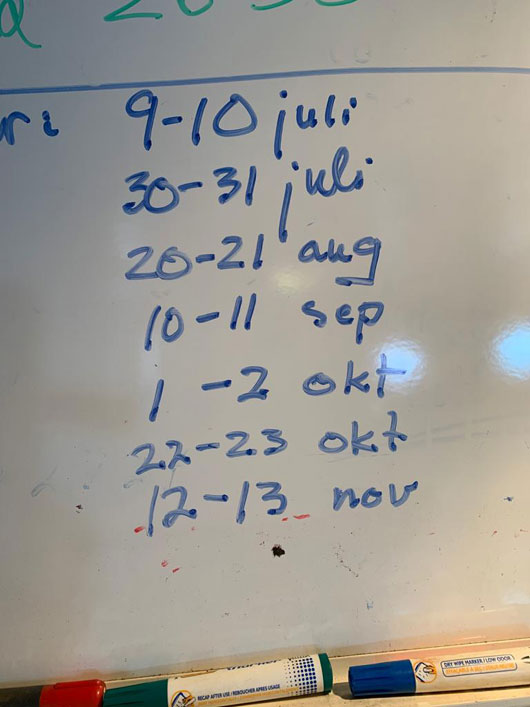 9-10 juli
30-31 juli
20-21 aug
10-11 sep
1-2 okt
22-23 okt
12-13 nov
RECAP AFTER USE / REBOUCHER APRES USAGE
DRY WIPE MARKER / LOW ODOR